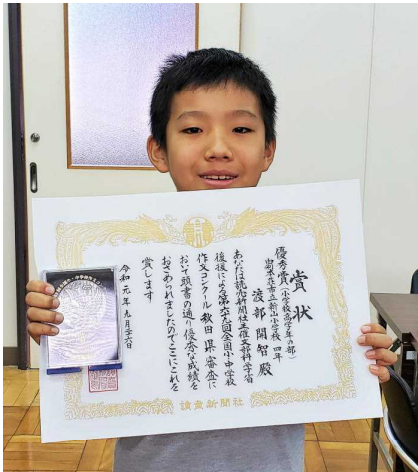 賞状
優秀賞(小学校高学年の部)
由利本荘市立新山小学校 四年
渡部開智殿
あなたは読売新聞社主催文部科学省
後援による第六九回全国小中学校
作文コンクール秋田県審査に
おいて頭書の通り優秀な成績を
おさめられましたのでここにこれを
賞します
令和元年九月二十六日
讀賣新聞社